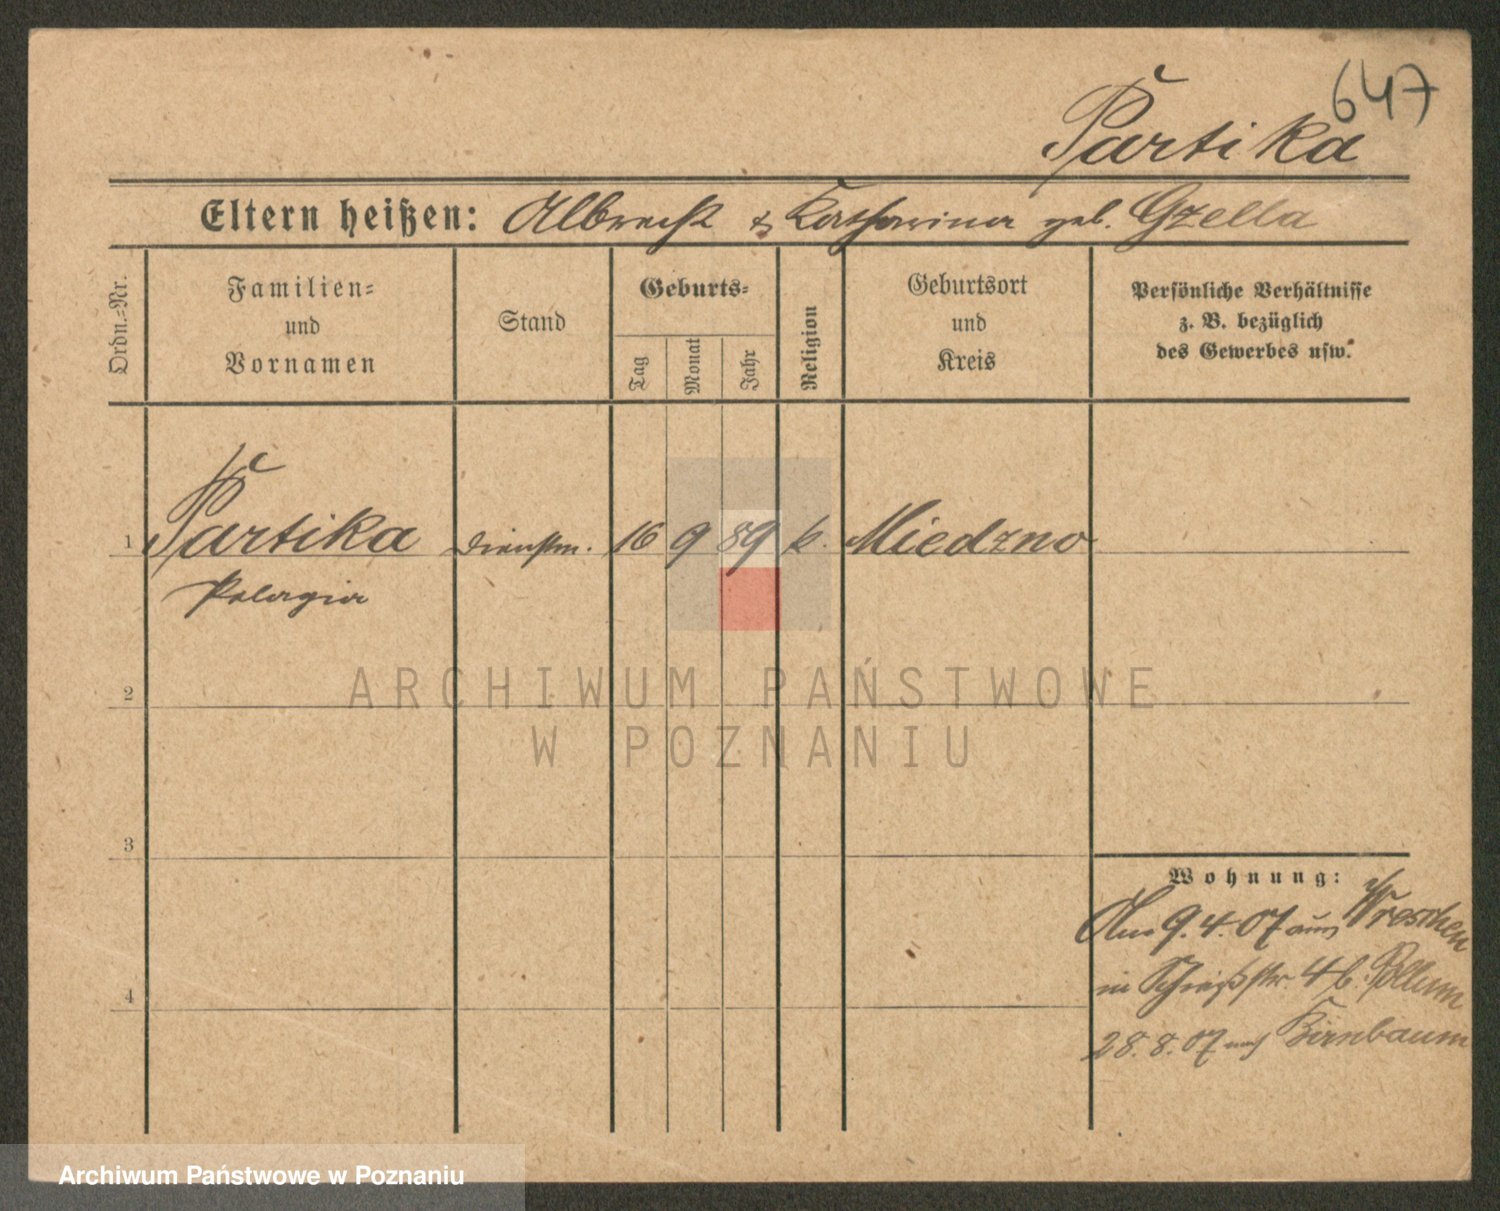 647
Partika
Eltern heißen: Albrecht & Katharina geb. Gzella
Ordn.=Nr.
Familien=
und
Vornamen
Stand
Geburts=
Tag
Monat
Jahr
Religion
Geburtsort
und
Kreis
Persönliche Verhältnisse
z. B. bezüglich
des Gewerbes usw.
1 Partika Dienstm. 16 9 89 k. Miedzno
Pelagia
2
3
4
Wohnung:
Am 9. 4. 07 aus Wreschen
in 4 b. Pollum
28. 8. 07 nach Birnbaum
ARCHIWUM PAŃSTWOWE
W POZNANIU
Archiwum Państwowe w Poznaniu